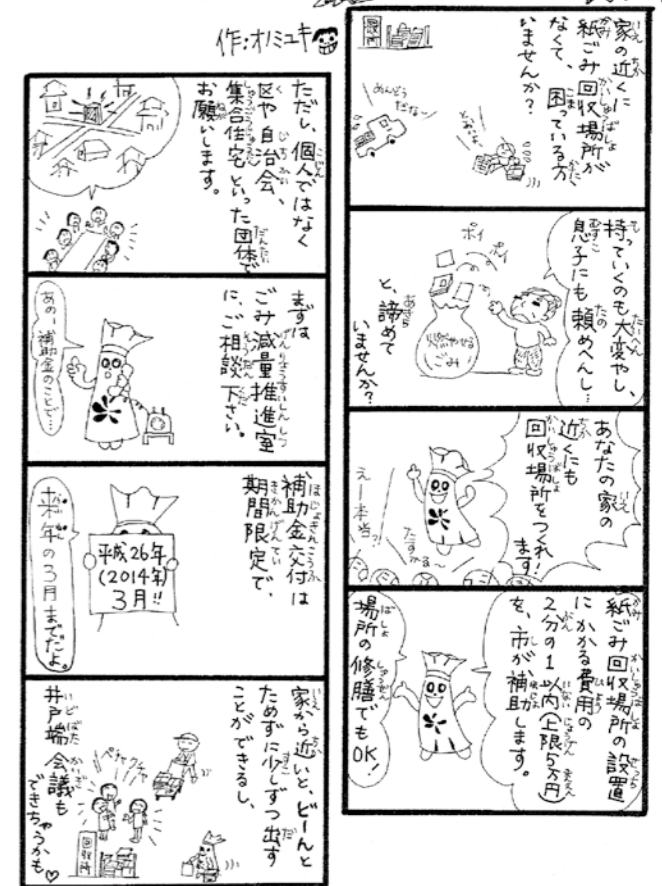 家の近くに
紙ごみ回収場所が
なくて、困っている方
いませんか?
回収所
めんどう
だなー
とおいなー
持っていくのも大変やし、
息子にも頼めへんし…
ポイ
ポイ
燃やせる
ごみ
と、諦めて
いませんか?
あなたの家の
近くにも
回収場所をつくれ
ます!
えー本当?!
たすかる〜
紙ごみ回収場所の設置
にかかる費用の
2分の1以内(上限5万円)
を、市が補助します。
場所の修膳でも
OK!
作:オノミユキ
ただし、個人ではなく
区や自治会、
集合住宅といった団体で
お願いします。
まずは
ごみ減量推進室
に、ご相談下さい。
あのー補助金のことで…
補助金交付は
期間限定で、
平成26年
(2014年)
3月!!
来年の3月までだよ。
家から近いと、ビーんと
ためずに少しずつ出す
ことができるし、
ペチャクチャ
井戸端会議も
できちゃうかも♡
回収所